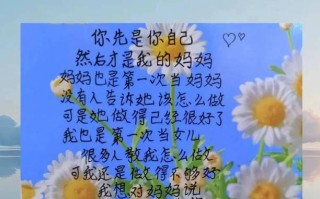 你先是你自己
然后才是我的妈妈
妈妈也是第一次当妈妈
没有人告诉她该怎么做
可是她做得已经很好了
我也是第一次当女儿
很多人教我怎么做
可我还是做得不够好
我想对妈妈说